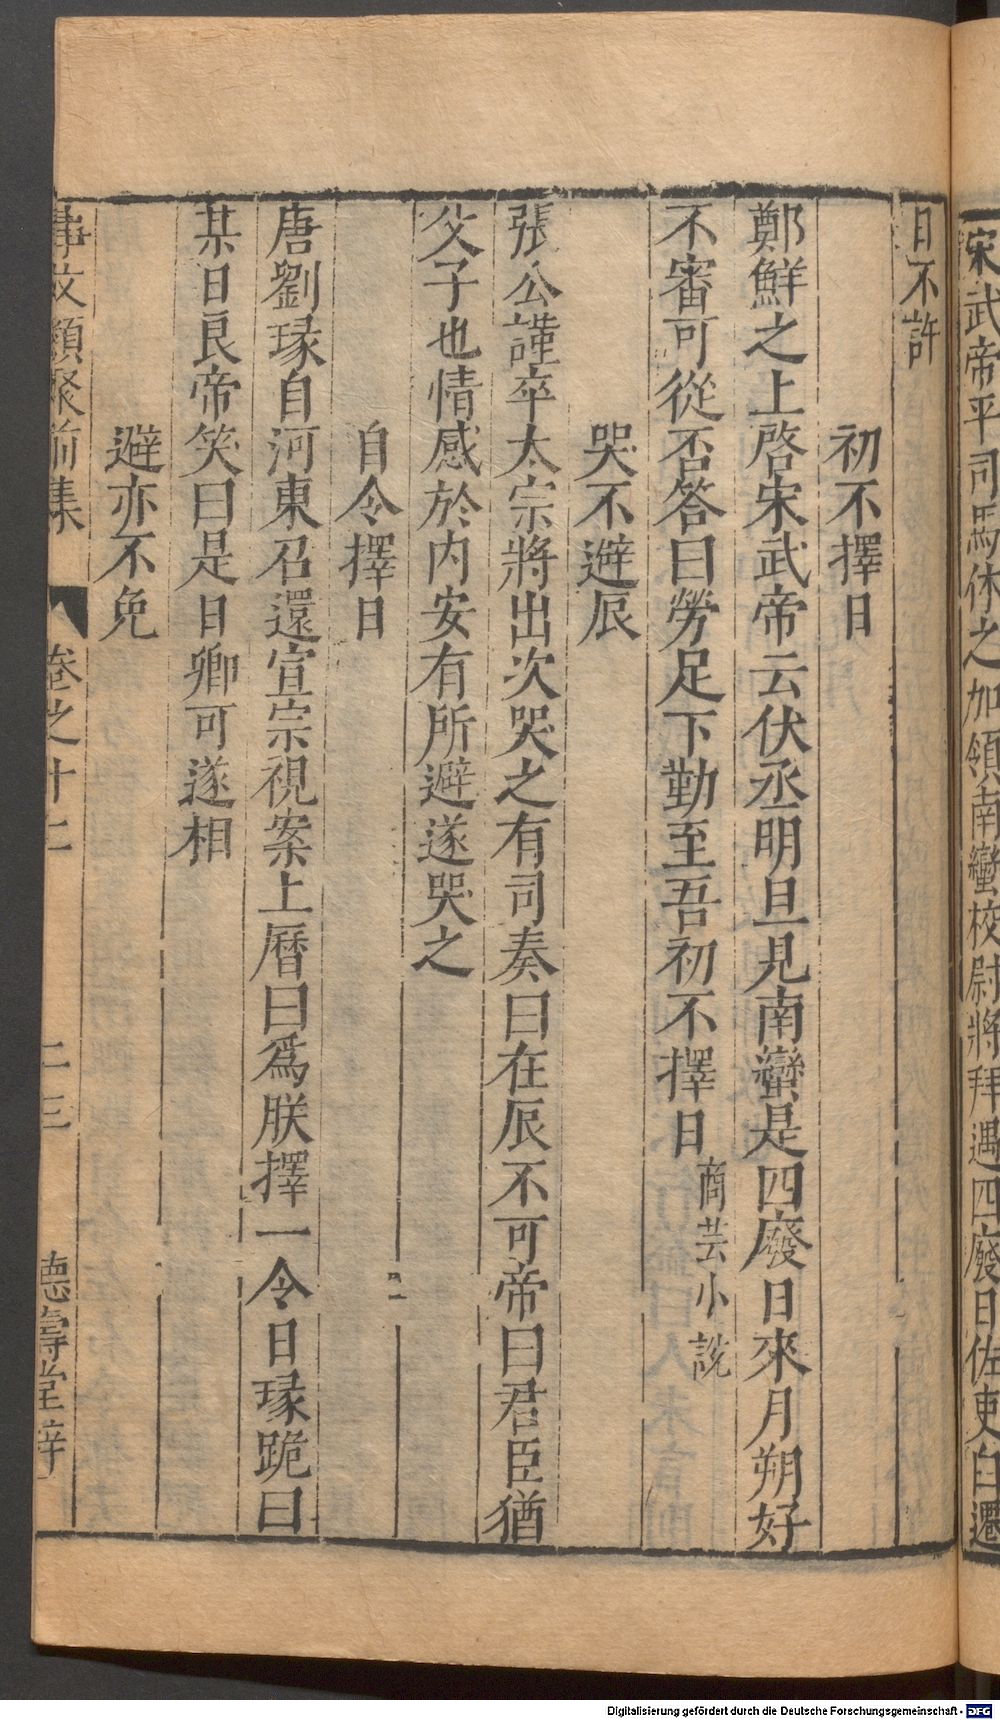 宋武帝平司馬休之加領南蠻校尉將拜遇四廢日佐吏白遷
日不許
初不擇日
鄭鮮之上啓宋武帝云伏丞明旦見南蠻是四廢日來月朔好
不審可從否答曰勞足下勤至吾初不擇日商芸小說
哭不避辰
張公謹卒太宗將出次哭之有司奏曰在辰不可帝曰君臣猶
父子也情感於内安有所避遂哭之
自令擇日
唐劉瑑自河東召還宣宗視案上曆曰爲朕擇一令日瑑跪曰
某日良帝笑曰是日卿可遂相
避亦不免
事文類聚前集 卷之十二 二三 德壽堂梓
Digitalisierung gefördert durch die Deutsche Forschungsgemeinschaft - DFG